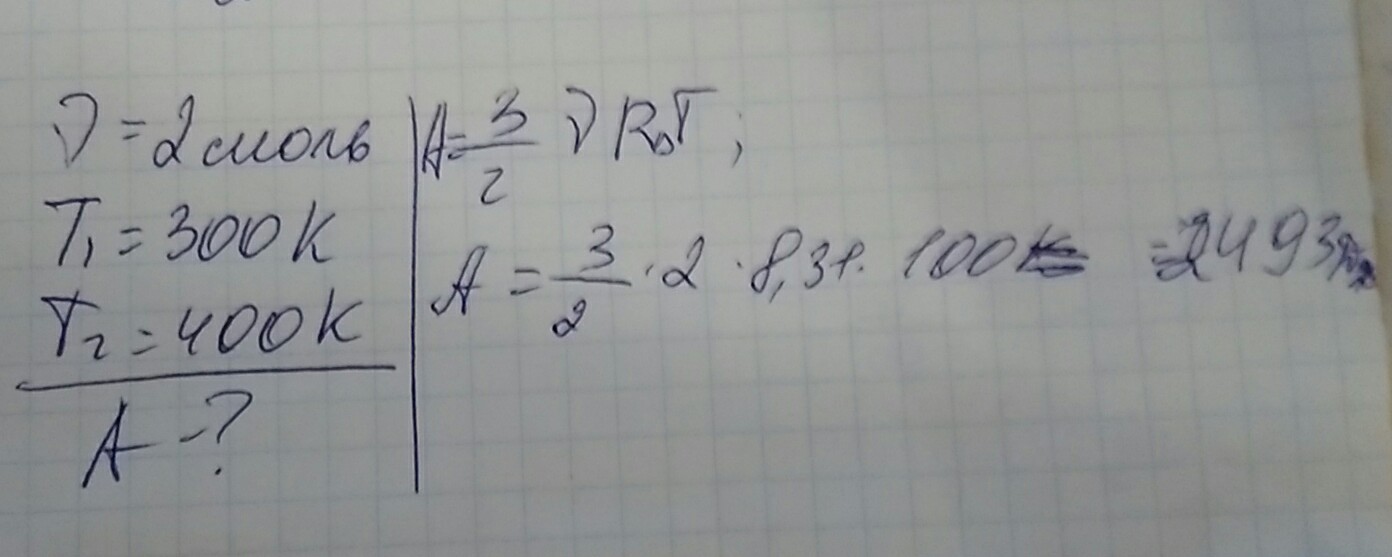 ν = 2 моль
T₁ = 300 K
T₂ = 400 K
A - ?
A = 3/2 ν RΔT;
A = 3/2 · 2 · 8,31 · 100 = 2493 Дж